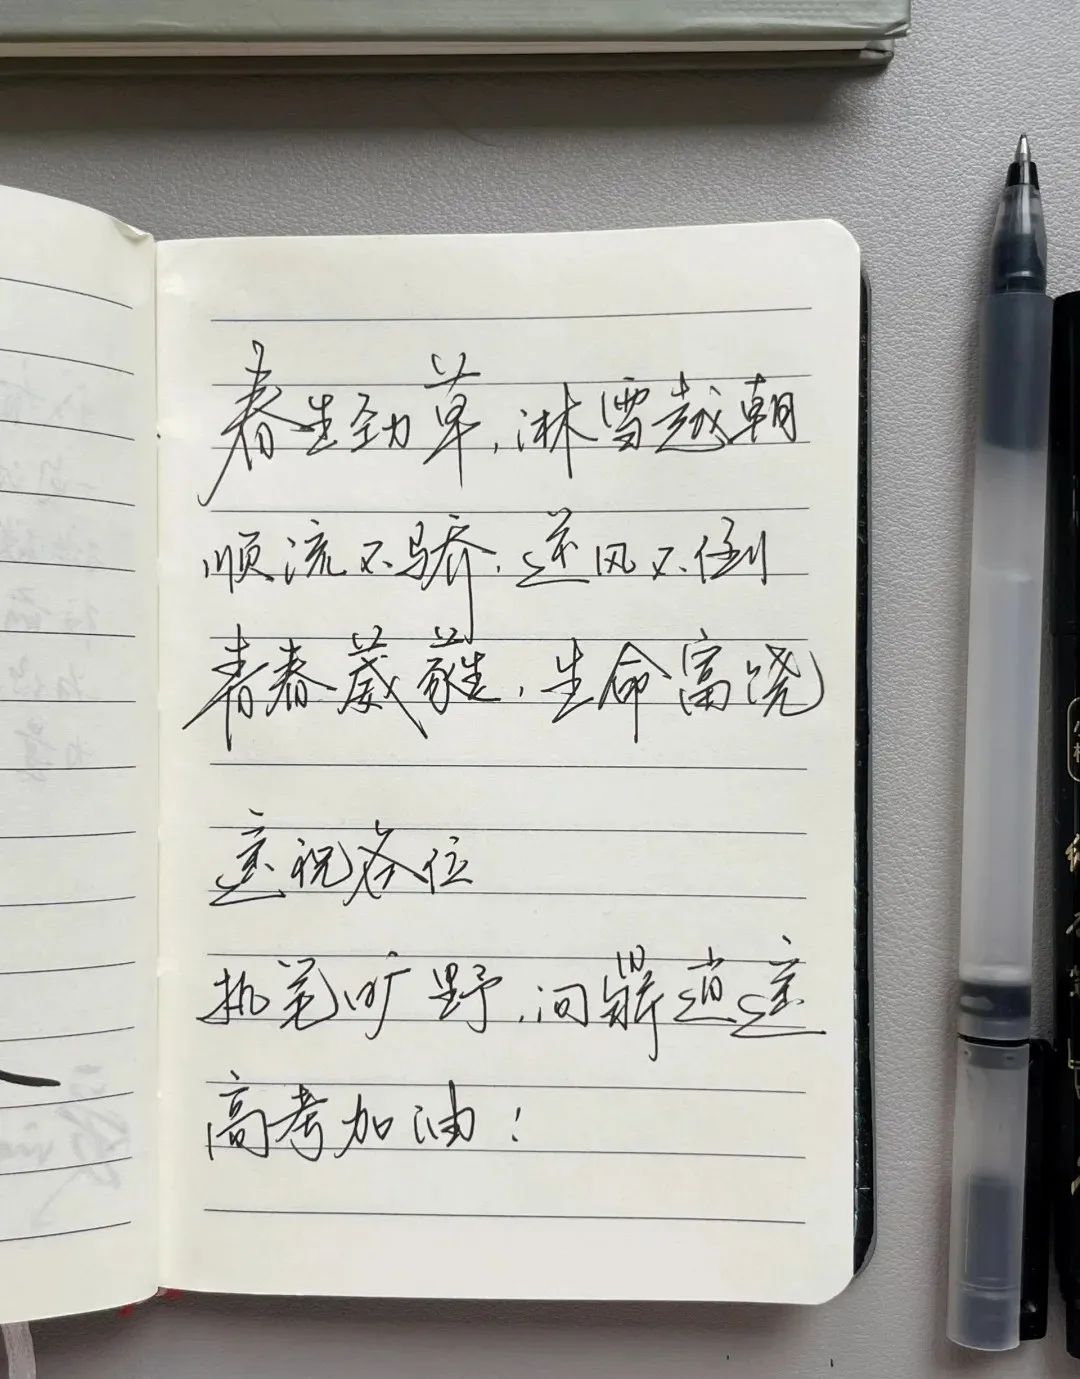 春生劲草，淋雪越朝
顺流不骄，逆风不倒
青春葳蕤，生命富饶
遥祝各位
执笔旷野，问鼎逍遥
高考加油！